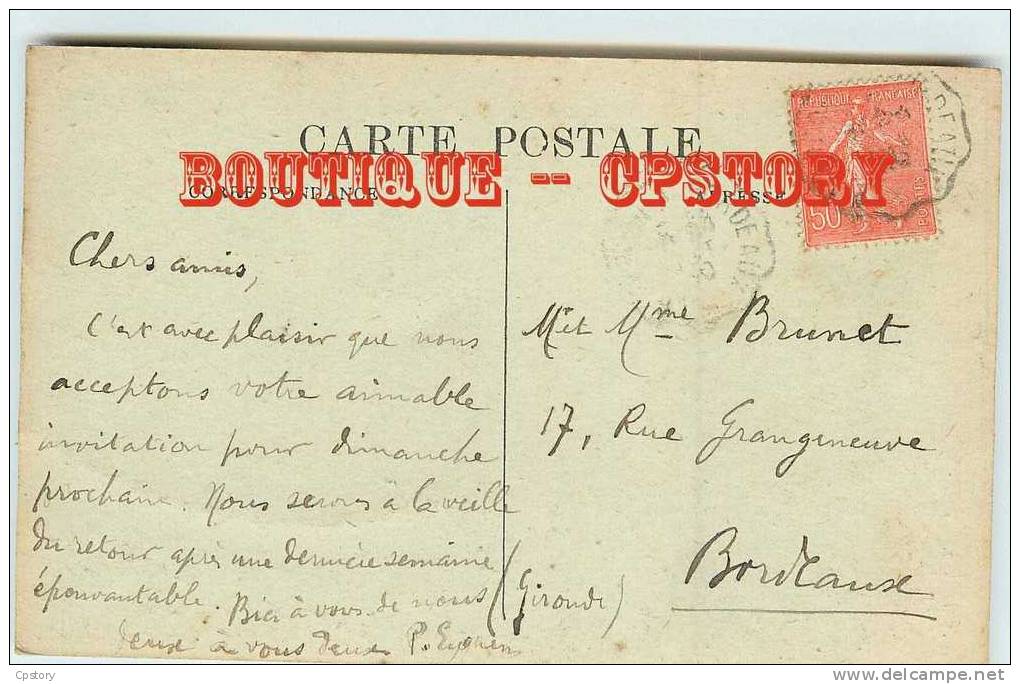 CARTE POSTALE
BOUTIQUE -- CPSTORY
CORRESPONDANCE
ADRESSE
REPUBLIQUE FRANCAISE
50
POSTES
Chers amis,
C'est avec plaisir que nous
acceptons votre aimable
invitation pour dimanche
prochain. Nous serons à la veille
du retour après une dernière semaine
épouvantable. Bien à vous de nous
deux à vous deux P.
Mr et Mme Brunet
17, Rue Grangeneuve
Bordeaux
(Gironde)
Cpstory
delcampe.net